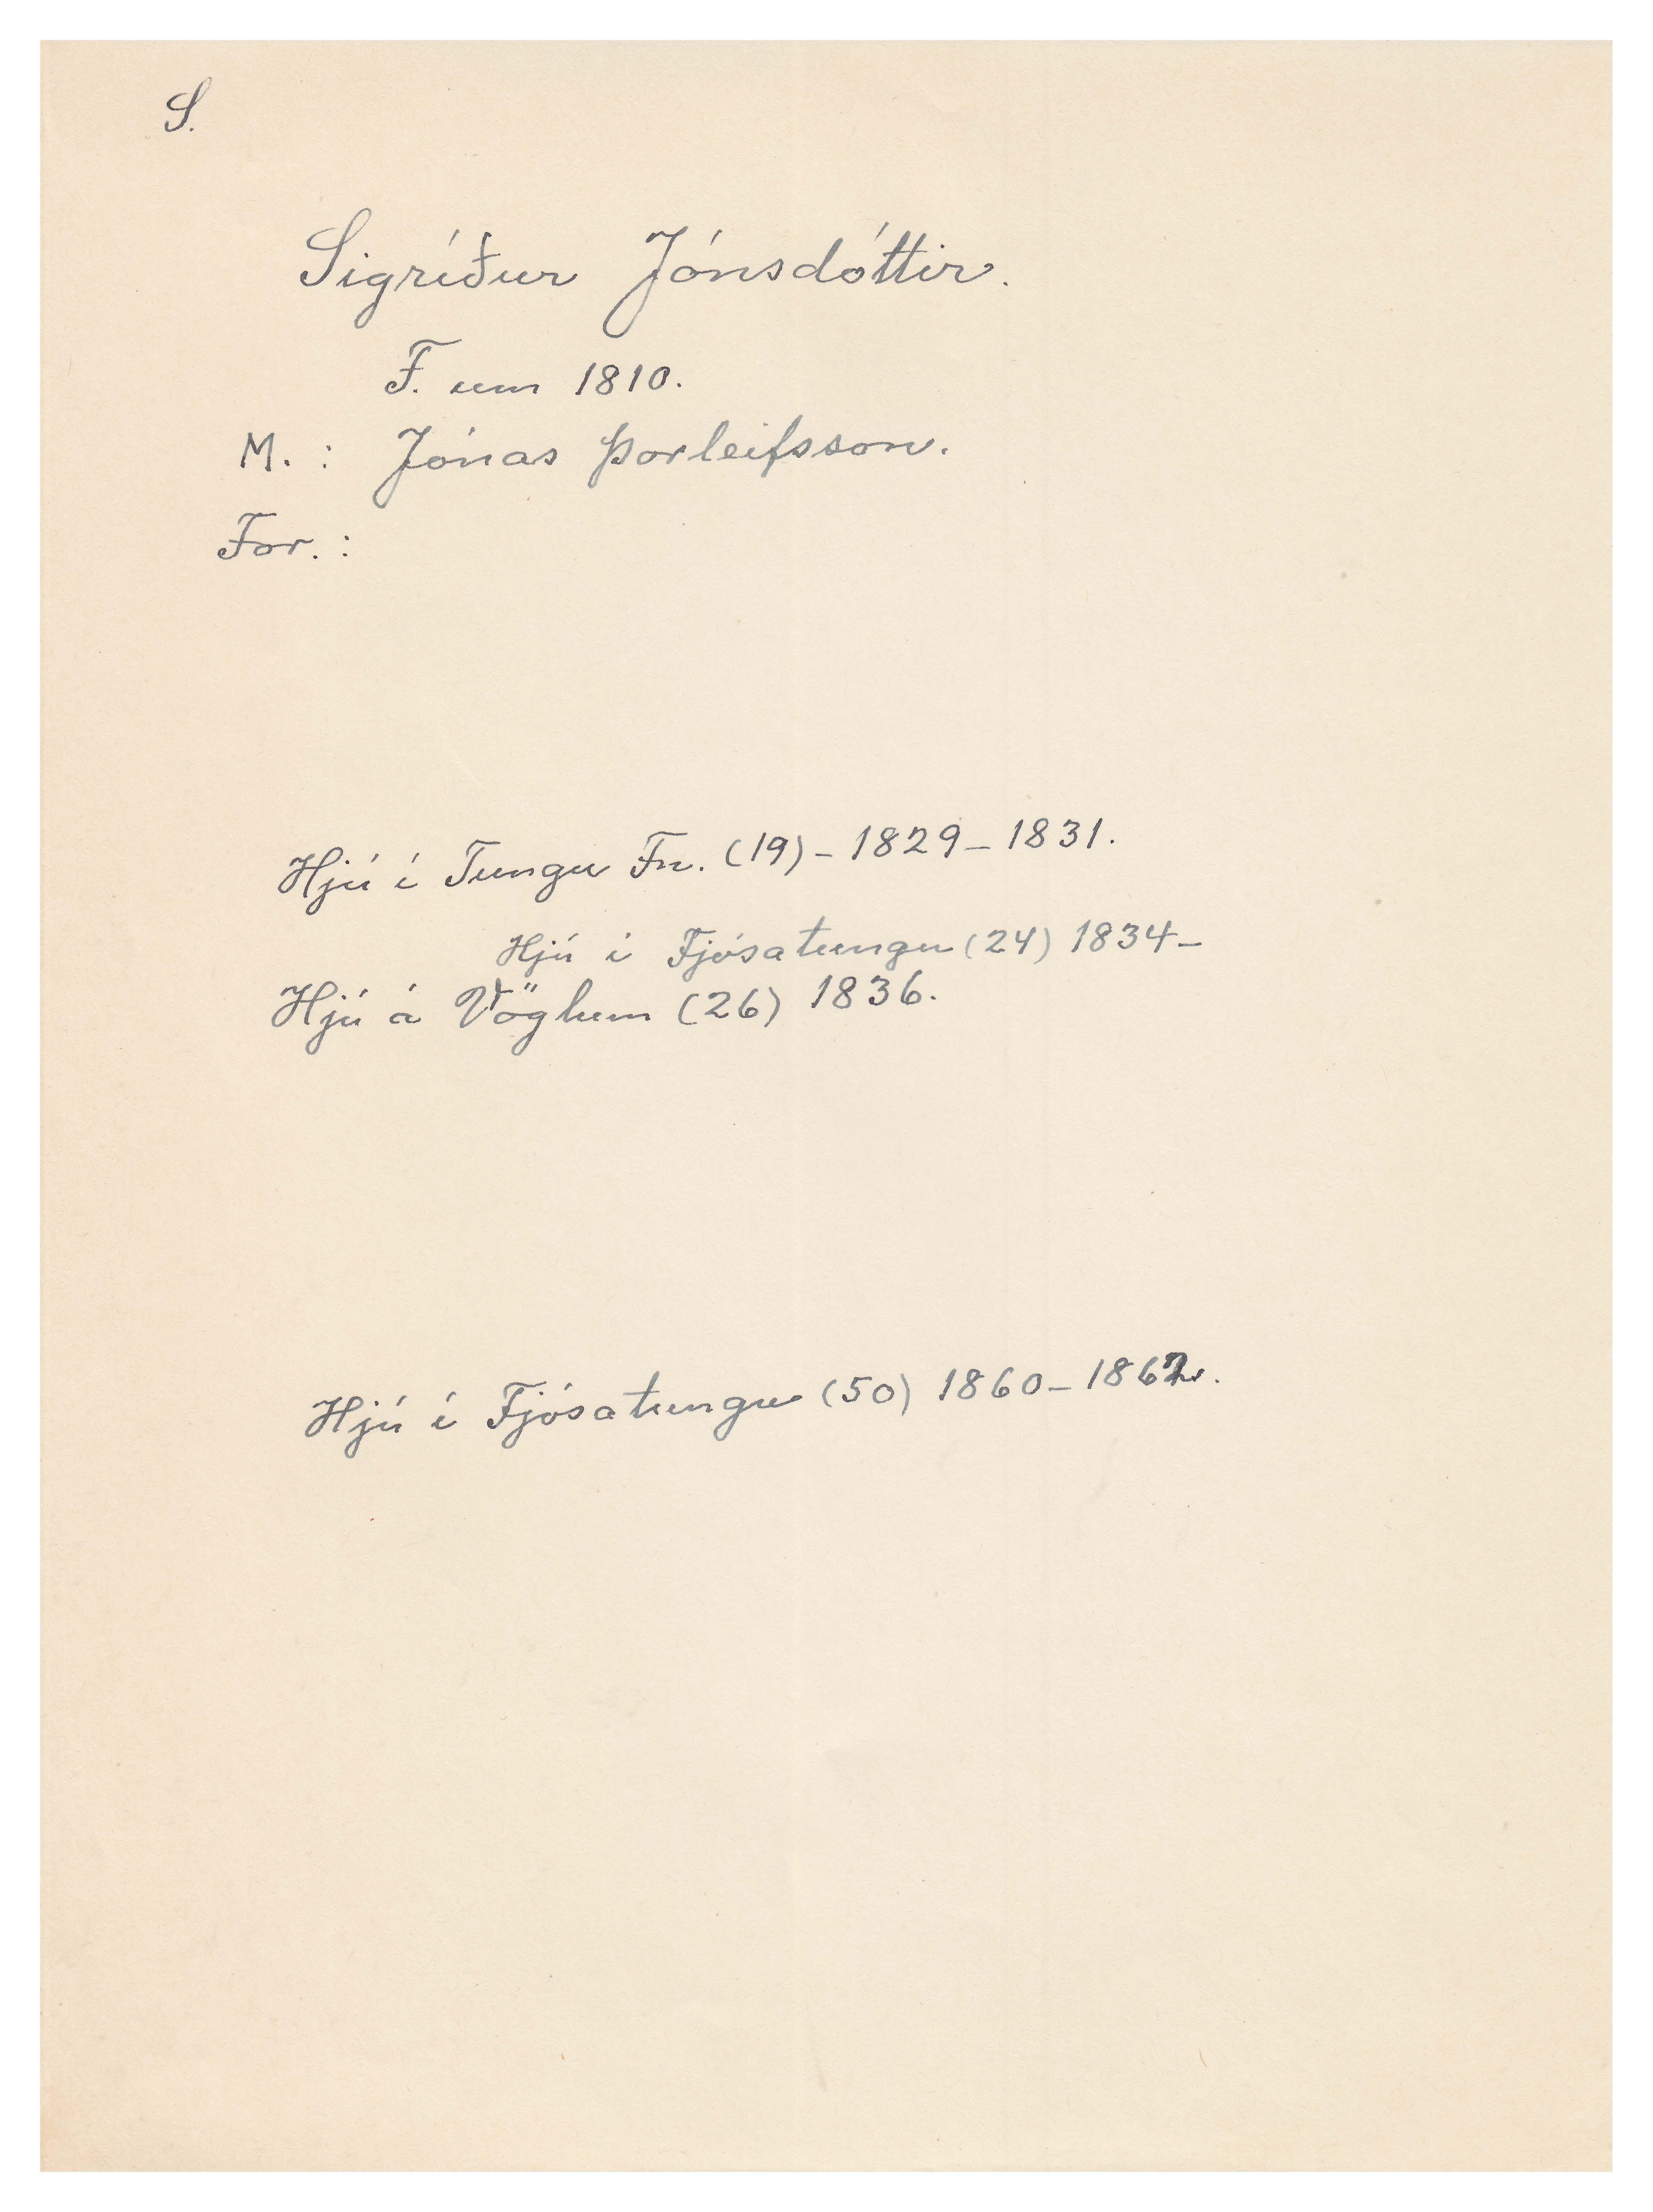 S.
Sigríður Jónsdóttir.
F. um 1810.
M. : Jónas Þorleifsson.
For. :
Hjú í Tungu Fn. (19) - 1829 - 1831.
Hjú í Fjósatungu (24) 1834 -
Hjú á Vöglum (26) 1836.
Hjú í Fjósatungu (50) 1860 - 1862.